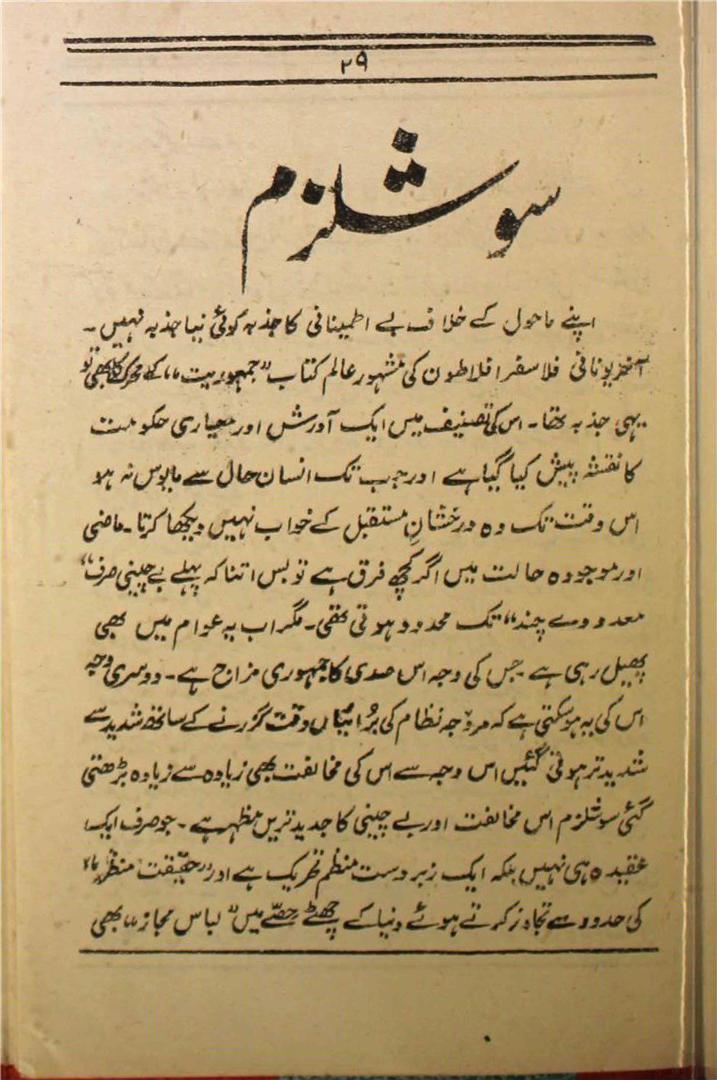 ۲۹
سوشلزم
اپنے ماحول کے خلاف بے اطمینانی کا جذبہ کوئی نیا جذبہ نہیں ۔
آخر یونانی فلاسفر افلاطون کی مشہور عالم کتاب "جمہوریت" کے محرک کا بھی تو
یہی جذبہ تھا۔ اس کی تصنیف میں ایک آورش اور معیاری حکومت
کا نقشہ پیش کیا گیا ہے اور جب تک انسان حال سے مایوس نہ ہو
اس وقت تک وہ درخشانِ مستقبل کے خواب نہیں دیکھا کرتا ۔ ماضی
اور موجودہ حالت میں اگر کچھ فرق ہے تو بس اتنا کہ پہلے بے چینی صرف "
معدودے چند" تک محدود ہوتی تھی۔ مگر اب یہ عوام میں بھی
پھیل رہی ہے جس کی وجہ اس صدی کا جمہوری مزاج ہے۔ دوسری وجہ
اس کی یہ ہو سکتی ہے کہ مروّجہ نظام کی برُائیاں وقت گزرنے کے ساتھ شدید سے
شدید تر ہوتی گئیں اس وجہ سے اس کی مخالفت بھی زیادہ سے زیادہ بڑھتی
گئی سوشلزم اس مخالفت اور بے چینی کا جدید ترین مظہر ہے ۔ جو صرف ایک
عقیدہ ہی نہیں بلکہ ایک زبردست منظم تحریک ہے اور "حقیقت منظر"
کی حدود سے تجاوز کرتے ہوئے دنیا کے چھٹے حصّے میں "لباس مجاز" بھی